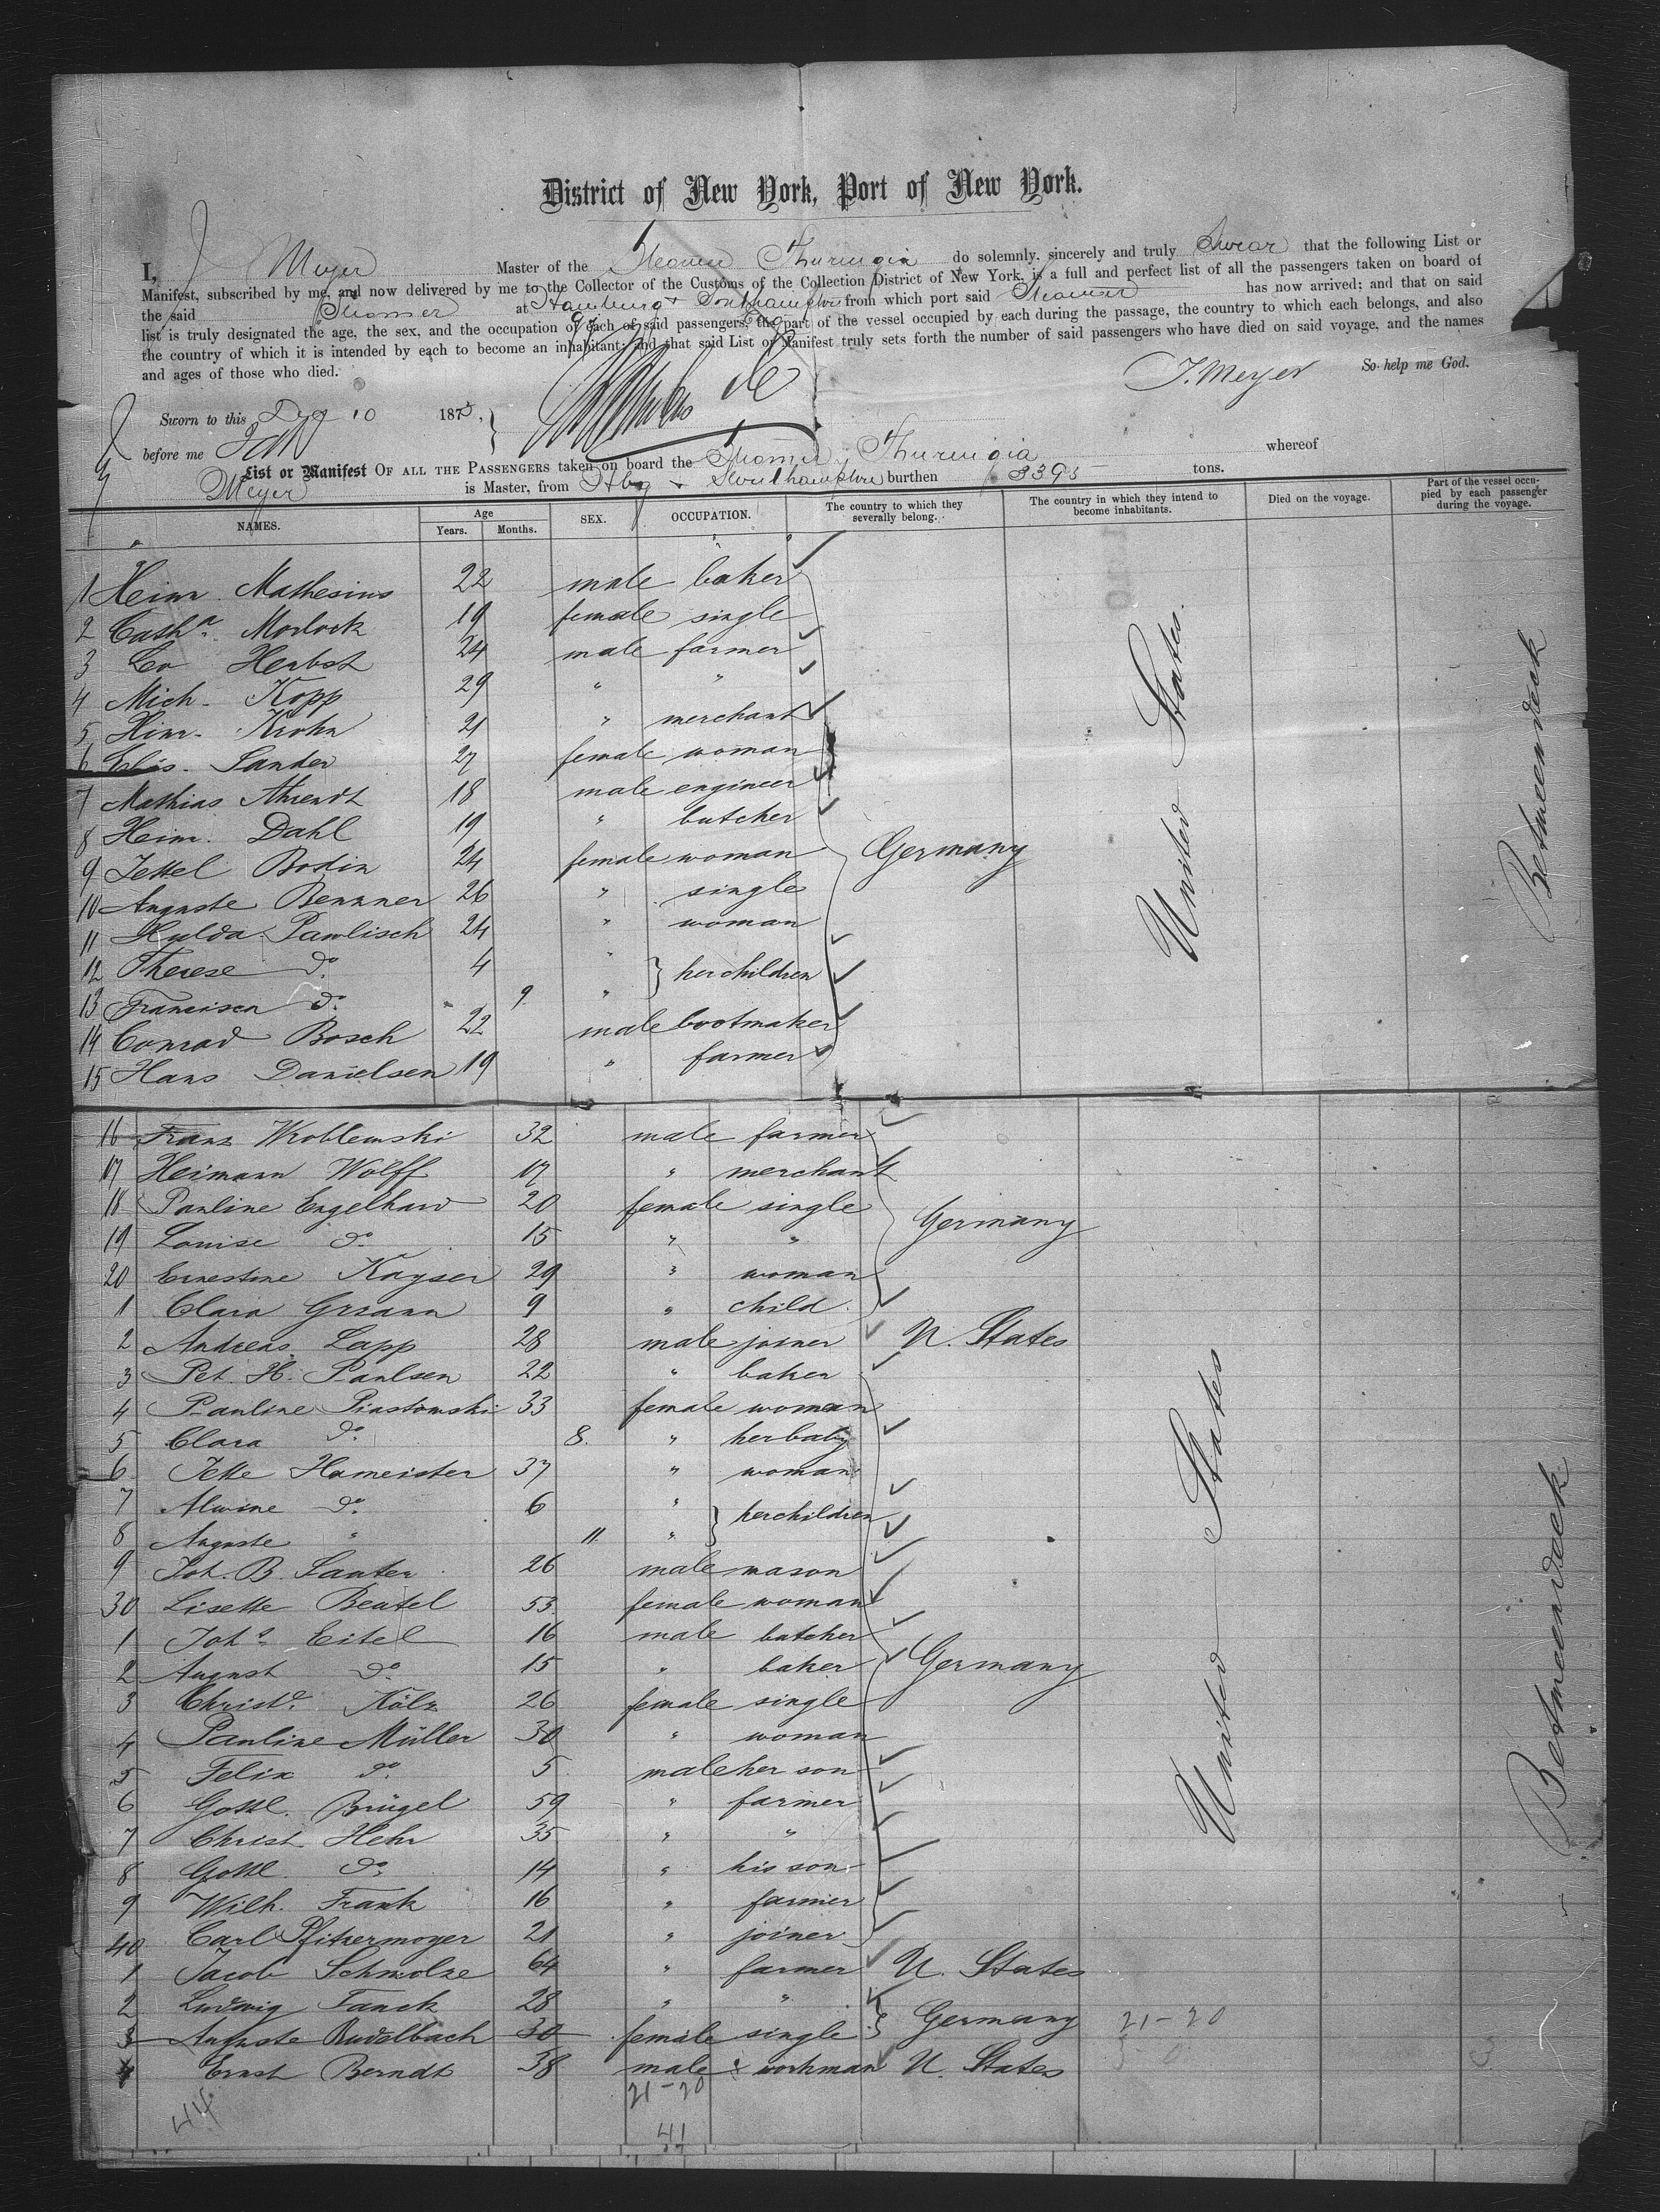 District of New York, Port of New York.
I, Meyer Master of the Steamer Thuringia do solemnly, sincerely and truly swear that the following List or
Manifest, subscribed by me, and now delivered by me to the Collector of the Customs of the Collection District of New York, is a full and perfect list of all the passengers taken on board of
the said Steamer at Hamburg + Southampton from which port said Steamer has now arrived; and that on said
list is truly designated the age, the sex, and the occupation of each of said passengers, the part of the vessel occupied by each during the passage, the country to which each belongs, and also
the country of which it is intended by each to become an inhabitant; and that said List or Manifest truly sets forth the number of said passengers who have died on said voyage, and the names
and ages of those who died.
J. Meyer So help me God.
Sworn to this 10 187
before me
List or Manifest OF ALL THE PASSENGERS taken on board the Steamer Thuringia whereof
Meyer is Master, from Hbg + Southampton burthen 3395 tons.
NAMES. Age Years. Months. SEX. OCCUPATION. The country to which they severally belong. The country in which they intend to become inhabitants. Died on the voyage. Part of the vessel occupied by each passenger during the voyage.
1 Heinr. Mathesius 22 male baker
2 Cath.a Morlock 19 female single
3 Leo Herbst 24 male farmer
4 Mich. Kopp 29 " "
5 Hinr. Krohn 21 " merchant
6 Elis. Sander 27 female woman
7 Mathias Ahrendt 18 male engineer
8 Heinr. Dahl 19 " butcher
9 Jettel Bodin 24 female woman Germany
10 Auguste Benzner 26 " single
11 Hulda Pawlisch 24 " woman
12 Therese do. 4 " her children
13 Francisca do. " 9 "
14 Conrad Bosch 22 male bootmaker
15 Hans Danielsen 19 " farmer
United States
Betweendeck
16 Franz Wroblewski 32 male farmer
17 Heimann Wolff 17 " merchant
18 Pauline Engelhard 20 female single
19 Louise do. 15 " " Germany
20 Ernestine Kayser 29 " woman
1 Clara Gramm 9 " child
2 Andreas Lapp 28 male joiner U. States
3 Pet. H. Paulsen 22 " baker
4 Pauline Piastowski 33 female woman
5 Clara do. 8. " her baby
6 Jette Hameister 37 " woman
7 Alwine do. 6 " her children
8 Auguste " 11. "
9 Joh. B. Sauter 26 male mason
30 Lisette Beutel 53. female woman
1 Joh.s Eitel 16 male butcher
2 August do. 15 " baker Germany
3 Christ.e Kölz 26 female single
4 Pauline Müller 30 " woman
5 Felix do. 5 male her son
6 Gottl. Brügel 59 " farmer
7 Christ. Hehr 35 " "
8 Gottl. do. 14 " his son
9 Wilh. Frank 16 " farmer
40 Carl Pfitzermoyer 21 " joiner
1 Jacob Schmolze 64 " farmer U. States
2 Ludwig Tanck 28 " "
3 Auguste Rudelbach 30 female single Germany 21-20
4 Ernst Berndt 38 male workman U. States
United States
Betweendeck
21-20
44
41